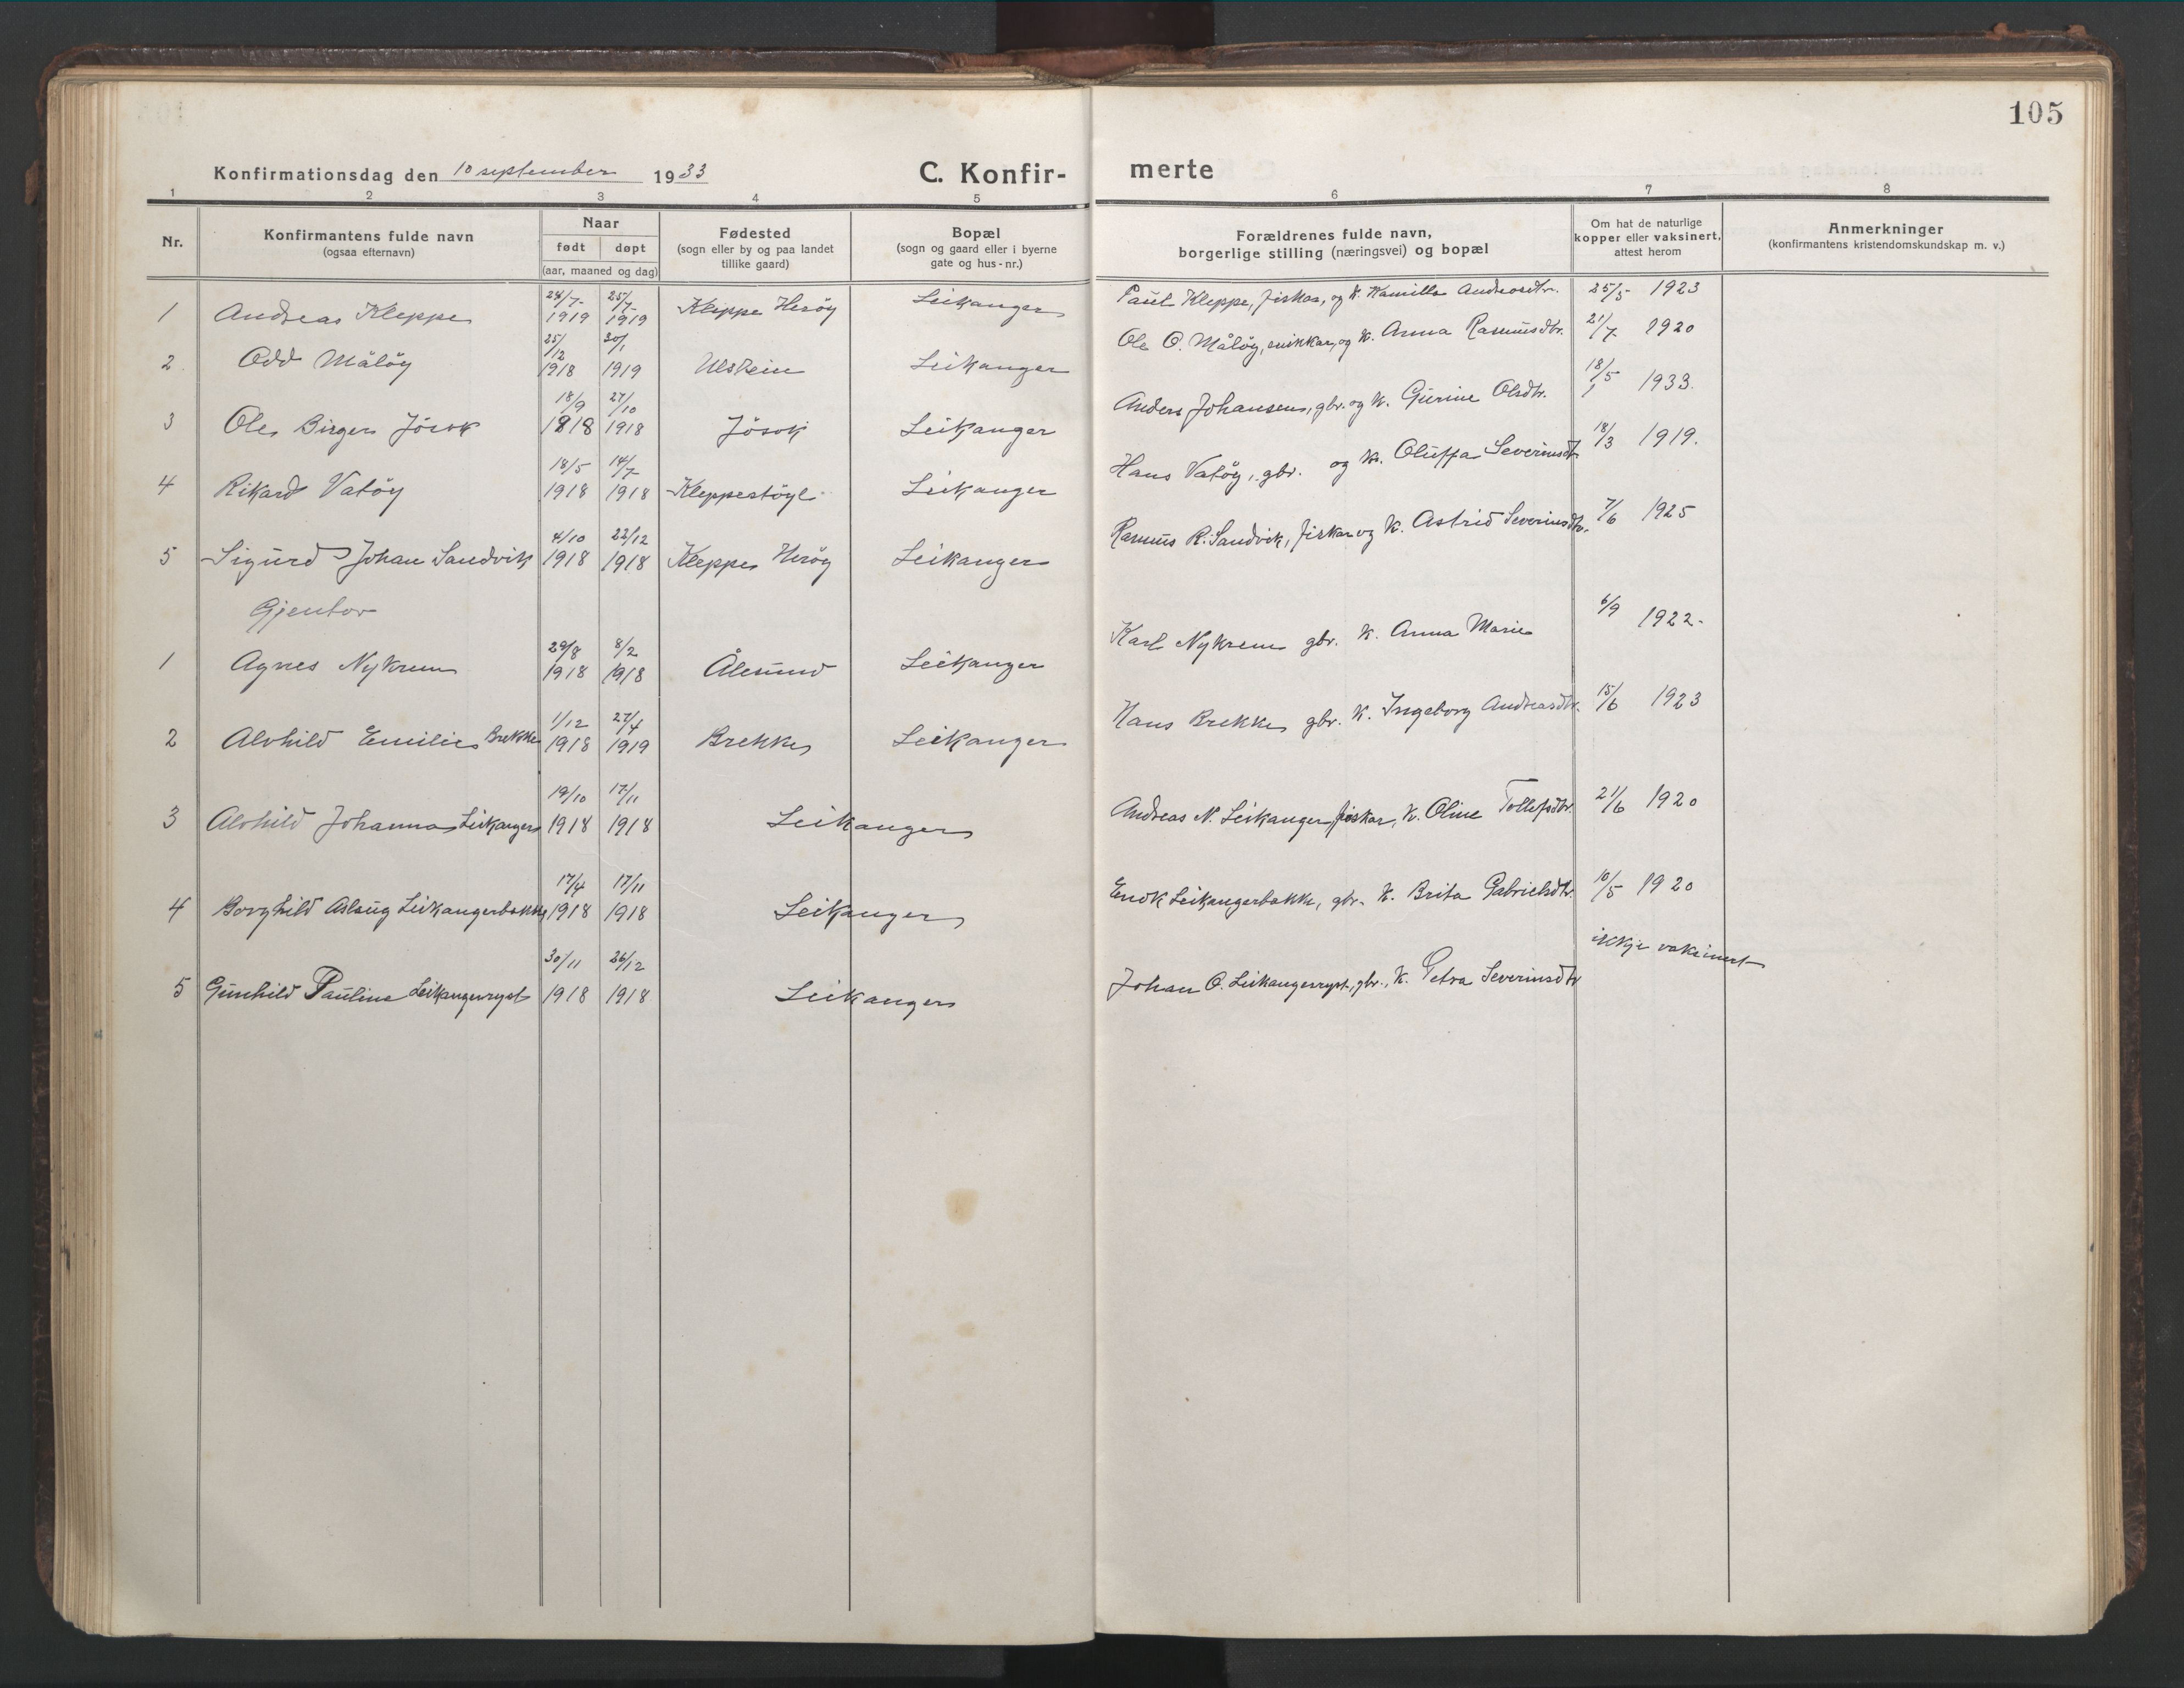 105
Konfirmationsdag den 10 september 1933
C. Konfir- merte
1 2 3 4 5 6 7 8
Nr.
Konfirmantens fulde navn
(ogsaa efternavn)
Naar
født døpt
(aar, maaned og dag)
Fødested
(sogn eller by og paa landet
tillike gaard)
Bopæl
(sogn og gaard eller i byerne
gate og hus-nr.)
Forældrenes fulde navn,
borgerlige stilling (næringsvei) og bopæl
Om hat de naturlige
kopper eller vaksinert,
attest herom
Anmerkninger
(konfirmantens kristendomskundskap m. v.)
1 Andreas Kleppe 24/7- 1919 25/7- 1919 Kleppe Herøy Leikanger Paul Kleppe, fiskar, og k. Kamilla Andreasdtr. 25/5- 1923
2 Odd Måløy 25/12 1918 20/1 1919 Ulstein Leikanger Ole O. Måløy, snikkar, og k. Anna Rasmusdtr. 21/7- 1920
3 Ole Birger Jösok 18/9 1818 27/10 1918 Jösok Leikanger Anders Johansen, gbr. og k. Gurine Olsdtr. 18/5 1933.
4 Rikard Vatöy 18/5 1918 14/7- 1918 Kleppestöyl Leikanger Hans Vatöy, gbr. og k. Oluffa Severinsdt. 18/3 1919.
5 Sigurd Johan Sandvik 4/10 1918 22/12 1918 Kleppe Heröy Leikanger Rasmus R. Sandvik, fiskar og k. Astrid Severinsdtr. 7/6 1925
Gjentor
1 Agnes Nykrem 29/8 1918 8/2 1918 Ålesund Leikanger Karl Nykrem gbr. k. Anna Marie 6/9 1922-
2 Alvhild Emilie Brekke 1/12 1918 27/4 1919 Brekke Leikanger Hans Brekke gbr. k. Ingeborg Andreasdtr. 15/6 1923
3 Alvhild Johanna Leikanger 19/10 1918 17/11 1918 Leikanger Andreas N. Leikanger, fiskar, k. Oline Tollefsdtr. 21/6 1920
4 Borghild Aslaug Leikangerbakke 17/4 1918 17/11 1918 Leikanger Enok Leikangerbakke, gbr. k. Brita Gabrielsdtr. 10/5 1920
5 Gunhild Pauline Leikangerryst 30/11 1918 26/12 1918 Leikanger Johan O. Leikangerryst, gbr., k. Petra Severinsdtr ikkje vaksinert